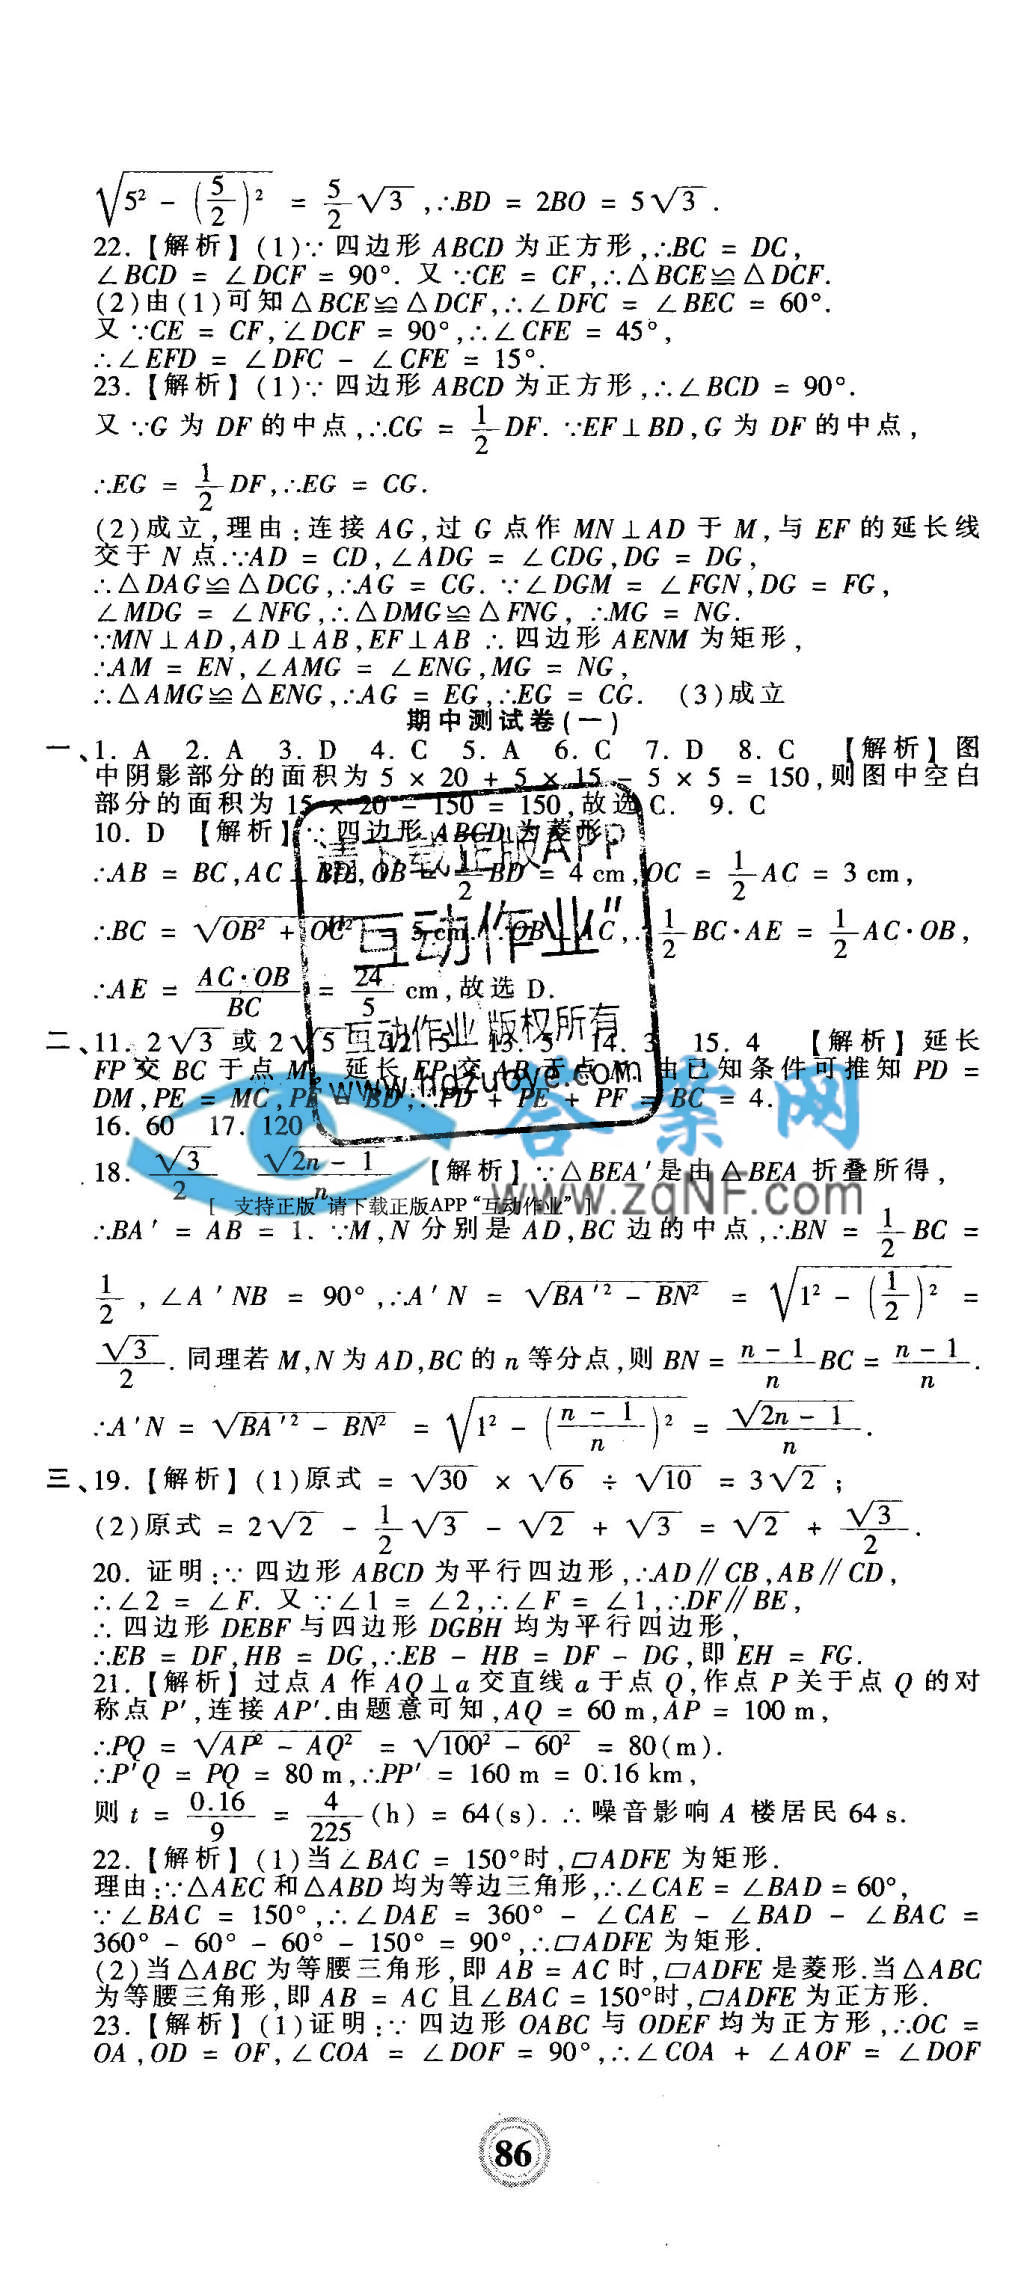 √(5² - (5/2)²) = 5/2 √3 ,∴BD = 2BO = 5√3 .
22.【解析】(1)∵ 四边形 ABCD 为正方形,∴BC = DC,
∠BCD = ∠DCF = 90°. 又 ∵CE = CF,∴△BCE≌△DCF.
(2)由(1)可知△BCE≌△DCF,∴∠DFC = ∠BEC = 60°.
又 ∵CE = CF,∠DCF = 90°,∴∠CFE = 45°,
∴∠EFD = ∠DFC - ∠CFE = 15°.
23.【解析】(1)∵ 四边形 ABCD 为正方形,∴∠BCD = 90°.
又 ∵G 为 DF 的中点,∴CG = 1/2 DF. ∵EF⊥BD,G 为 DF 的中点,
∴EG = 1/2 DF,∴EG = CG.
(2)成立,理由:连接 AG,过 G 点作 MN⊥AD 于 M,与 EF 的延长线
交于 N 点.∵AD = CD,∠ADG = ∠CDG,DG = DG,
∴△DAG≌△DCG,∴AG = CG. ∵∠DGM = ∠FGN,DG = FG,
∠MDG = ∠NFG,∴△DMG≌△FNG, ∴MG = NG.
∵MN⊥AD,AD⊥AB,EF⊥AB ∴ 四边形 AENM 为矩形,
∴AM = EN,∠AMG = ∠ENG,MG = NG,
∴△AMG≌△ENG,∴AG = EG,∴EG = CG. (3)成立
期中测试卷(一)
一、1. A 2. A 3. D 4. C 5. A 6. C 7. D 8. C 【解析】图
中阴影部分的面积为 5 × 20 + 5 × 15 - 5 × 5 = 150,则图中空白
部分的面积为 15 × 20 - 150 = 150,故选 C. 9. C
10. D 【解析】∵ 四边形 ABCD 为菱形,
∴AB = BC,AC⊥BD,OB = 1/2 BD = 4 cm,OC = 1/2 AC = 3 cm,
∴BC = √(OB² + OC²) = 5 cm.∵OB⊥AC,∴1/2 BC·AE = 1/2 AC·OB,
∴AE = AC·OB/BC = 24/5 cm,故选 D.
二、11. 2√3 或 2√5 12. 5 13. 5 14. 3 15. 4 【解析】延长
FP 交 BC 于点 M, 延长 EP 交 AB 于点 由已知条件可推知 PD =
DM,PE = MC,PF = BD,∴PD + PE + PF = BC = 4.
16. 60 17. 120
18. √3/2 √(2n - 1)/n 【解析】∵△BEA′是由△BEA 折叠所得,
∴BA′ = AB = 1. ∵M,N 分别是 AD,BC 边的中点,∴BN = 1/2 BC =
1/2 ,∠A′NB = 90°,∴A′N = √(BA′² - BN²) = √(1² - (1/2)²) =
√3/2 . 同理若 M,N 为 AD,BC 的 n 等分点,则 BN = (n - 1)/n BC = (n - 1)/n .
∴A′N = √(BA′² - BN²) = √(1² - ((n - 1)/n)²) = √(2n - 1)/n .
三、19.【解析】(1)原式 = √30 × √6 ÷ √10 = 3√2 ;
(2)原式 = 2√2 - 1/2 √3 - √2 + √3 = √2 + √3/2 .
20. 证明:∵ 四边形 ABCD 为平行四边形,∴AD∥CB,AB∥CD,
∴∠2 = ∠F. 又 ∵∠1 = ∠2,∴∠F = ∠1,∴DF∥BE,
∴ 四边形 DEBF 与四边形 DGBH 均为平行四边形,
∴EB = DF,HB = DG,∴EB - HB = DF - DG,即 EH = FG.
21.【解析】过点 A 作 AQ⊥a 交直线 a 于点 Q,作点 P 关于点 Q 的对
称点 P′,连接 AP′.由题意可知,AQ = 60 m,AP = 100 m,
∴PQ = √(AP² - AQ²) = √(100² - 60²) = 80(m).
∴P′Q = PQ = 80 m,∴PP′ = 160 m = 0.16 km,
则 t = 0.16/9 = 4/225 (h) = 64(s). ∴ 噪音影响 A 楼居民 64 s.
22.【解析】(1)当∠BAC = 150°时,▱ADFE 为矩形.
理由:∵△AEC 和△ABD 均为等边三角形,∴∠CAE = ∠BAD = 60°,
∵∠BAC = 150°,∴∠DAE = 360° - ∠CAE - ∠BAD - ∠BAC =
360° - 60° - 60° - 150° = 90°,∴▱ADFE 为矩形.
(2)当△ABC 为等腰三角形,即 AB = AC 时,▱ADFE 是菱形.当△ABC
为等腰三角形,即 AB = AC 且∠BAC = 150°时,▱ADFE 为正方形.
23.【解析】(1)证明:∵ 四边形 OABC 与 ODEF 均为正方形,∴OC =
OA,OD = OF,∠COA = ∠DOF = 90°,∴∠COA + ∠AOF = ∠DOF
86
请下载正版APP
"互动作业"
互动作业 版权所有
www.hdzuoye.com
答案网
www.zqNF.com
[ 支持正版 请下载正版APP "互动作业" ]